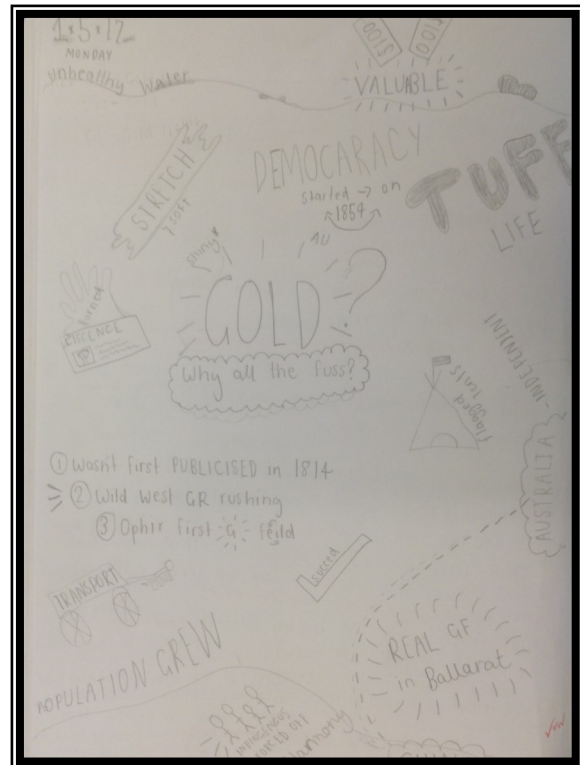 1•5•12
MONDAY
Unhealthy Water
$100
VALUABLE
STRETCH
DEMOCARACY
started → on
1854
TUFF
LIFE
shiny
AU
GOLD?
Why all the fuss?
turned
flagged tents
-INDEPENDENT
AUSTRALIA
① Wasn't first PUBLICISED in 1814
② Wild West GR rushing
③ Ophir first G feild
succeed
TRANSPORT
POPULATION GREW
REAL GF
in Ballarat
INDIGENOUS